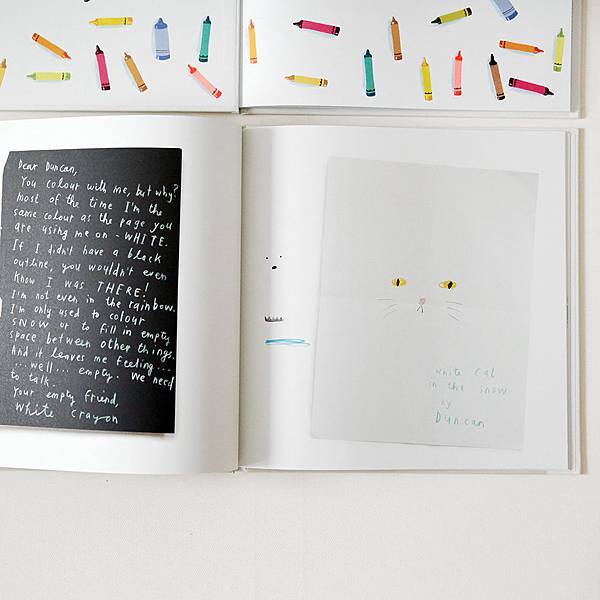 Dear Duncan,
You colour with me, but why?
most of the time I'm the
same colour as the page you
are using me on - WHITE.
If I didn't have a black
outline, you wouldn't even
know I was THERE!
I'm not even in the rainbow.
I'm only used to colour
SNOW or to fill in empty
space between other things.
And it leaves me feeling...
...well... empty. We need
to talk.
Your empty friend,
White crayon
white cat
in the snow
by
Duncan